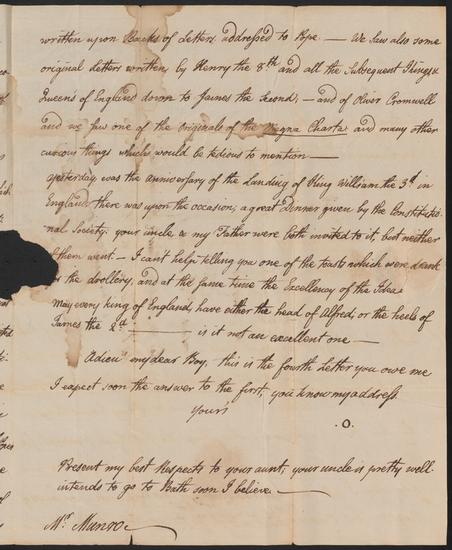 written upon Backs of Letters addressed to Pope — We saw also some
original Letters written by Henry the 8th and all the Subsequent Kings &
Queens of England down to James the Second, — and of Oliver Cromwell
and we saw one of the Originals of the Magna Charta and many other
curious things which would be tedious to mention —
Yesterday was the anniversary of the Landing of King William the 3d in
England, there was upon the occasion, a great Dinner given by the Constitutio
nal Society. your uncle & my Father were both invited to it, but neither
of them went — I can't help telling you one of the toasts which were drank
for the drollery, and at the same time the Excellency of the Idea
May every king of England, have either the head of Alfred, or the heels of
James the 2d ——— is it not an excellent one —
Adieu my dear Boy, this is the fourth Letter you owe me
I expect soon the answer to the first, you know my address
Yours
O.
Present my best Respects to your aunt, your uncle is pretty well-
intends to go to Bath soon I believe —
Mr. Munro